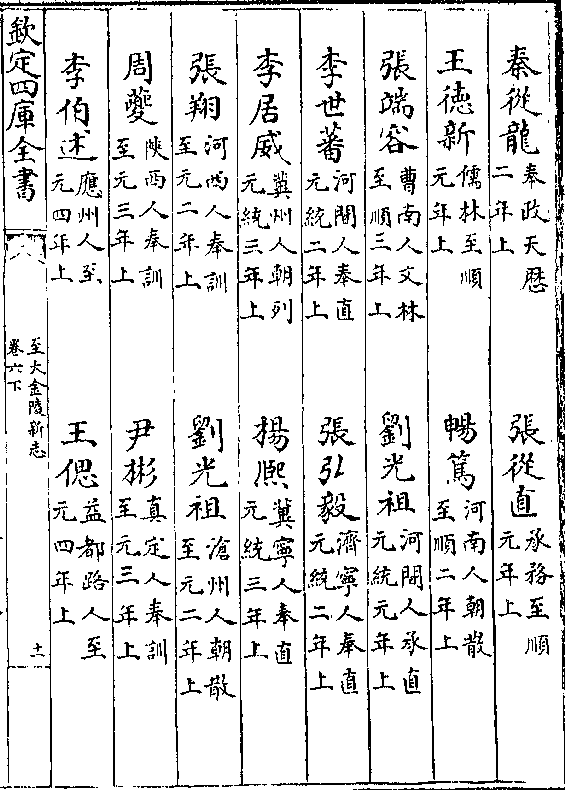 秦從龍 奉政天厯二年上 張從直 承務至順元年上
王徳新 儒林至順元年上 暢篤 河南人朝散至順二年上
張端容 曹南人文林至順三年上 劉光祖 河間人承直元統元年上
李世蕃 河間人奉直元統二年上 張弘毅 濟寧人奉直元統二年上
李居威 冀州人朝列元統三年上 楊熈 冀寧人奉直元統三年上
張翔 河西人奉訓至元二年上 劉光祖 滄州人朝散至元二年上
周夔 陜西人奉訓至元三年上 尹彬 真定人奉訓至元三年上
李伯述 應州人至元四年上 王偲 益都路人至元四年上
欽定四庫全書
至大金陵新志
卷六下
十一